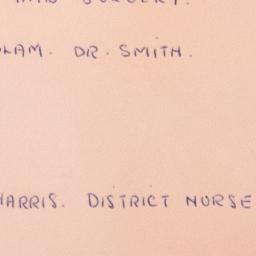 SURGERY.
DR. SMITH.
HARRIS. DISTRICT NURSE